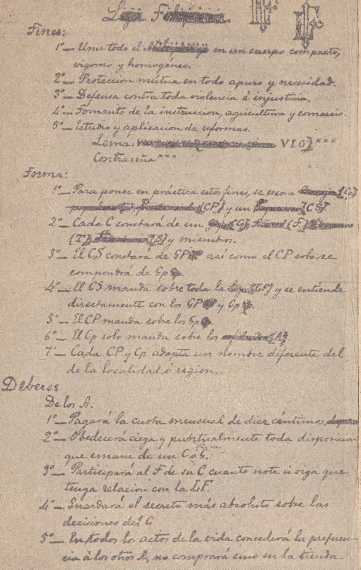 Liga Filipina
Fines:
1º_ Unir todo el en un cuerpo compacto,
vigoroso y homogéneo.
2º_ Protección mútua en todo apuro y necesidad.
3º_ Defensa contra toda violencia é injusticia.
4º_ Fomento de la instrucción, agricultura y comercio.
5º_ Estudio y aplicación de reformas.
Lema
Contraseña ***
Forma:
1º_ Para poner en práctica estos fines, se creará
(CP) y un (CS)
2º_ Cada C constará de un
y miembros.
3º_ El CS constará de GP así como el CP solo se
compondrá de Gp
4º_ El CS manda sobre toda la y se entiende
directamente con los GP y Gp
5º_ El CP manda sobre los Gp
6º_ El Cp solo manda sobre los
7º_ Cada CP y Cp adopta un nombre diferente del
de la localidad ó region.
Deberes
De los A.
1º_ Pagará la cuota mensual de diez céntimos
2º_ Obedecerá ciega y puntualmente toda disposicion
que emane de un C ó G.
3º_ Participará al F de su C cuanto note ú oiga que
tenga relacion con la LF.
4º_ Guardará el secreto más absoluto sobre las
decisiones del
5º_ En todos los actos de la vida concederá la preferen-
cia á los otros A, no comprará sino en la tienda